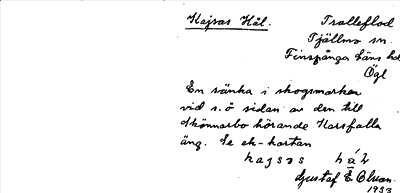 Kajsas Hål. Tralleflod
Tjällmo sn.
Finspånga läns hd
Ögl
En sänka i skogsmarken
vid s.ö sidan av den till
Skönnarbo hörande Karsfalla
äng. Se ek-kartan
kajsas hål
Gustaf E Olson.
1933